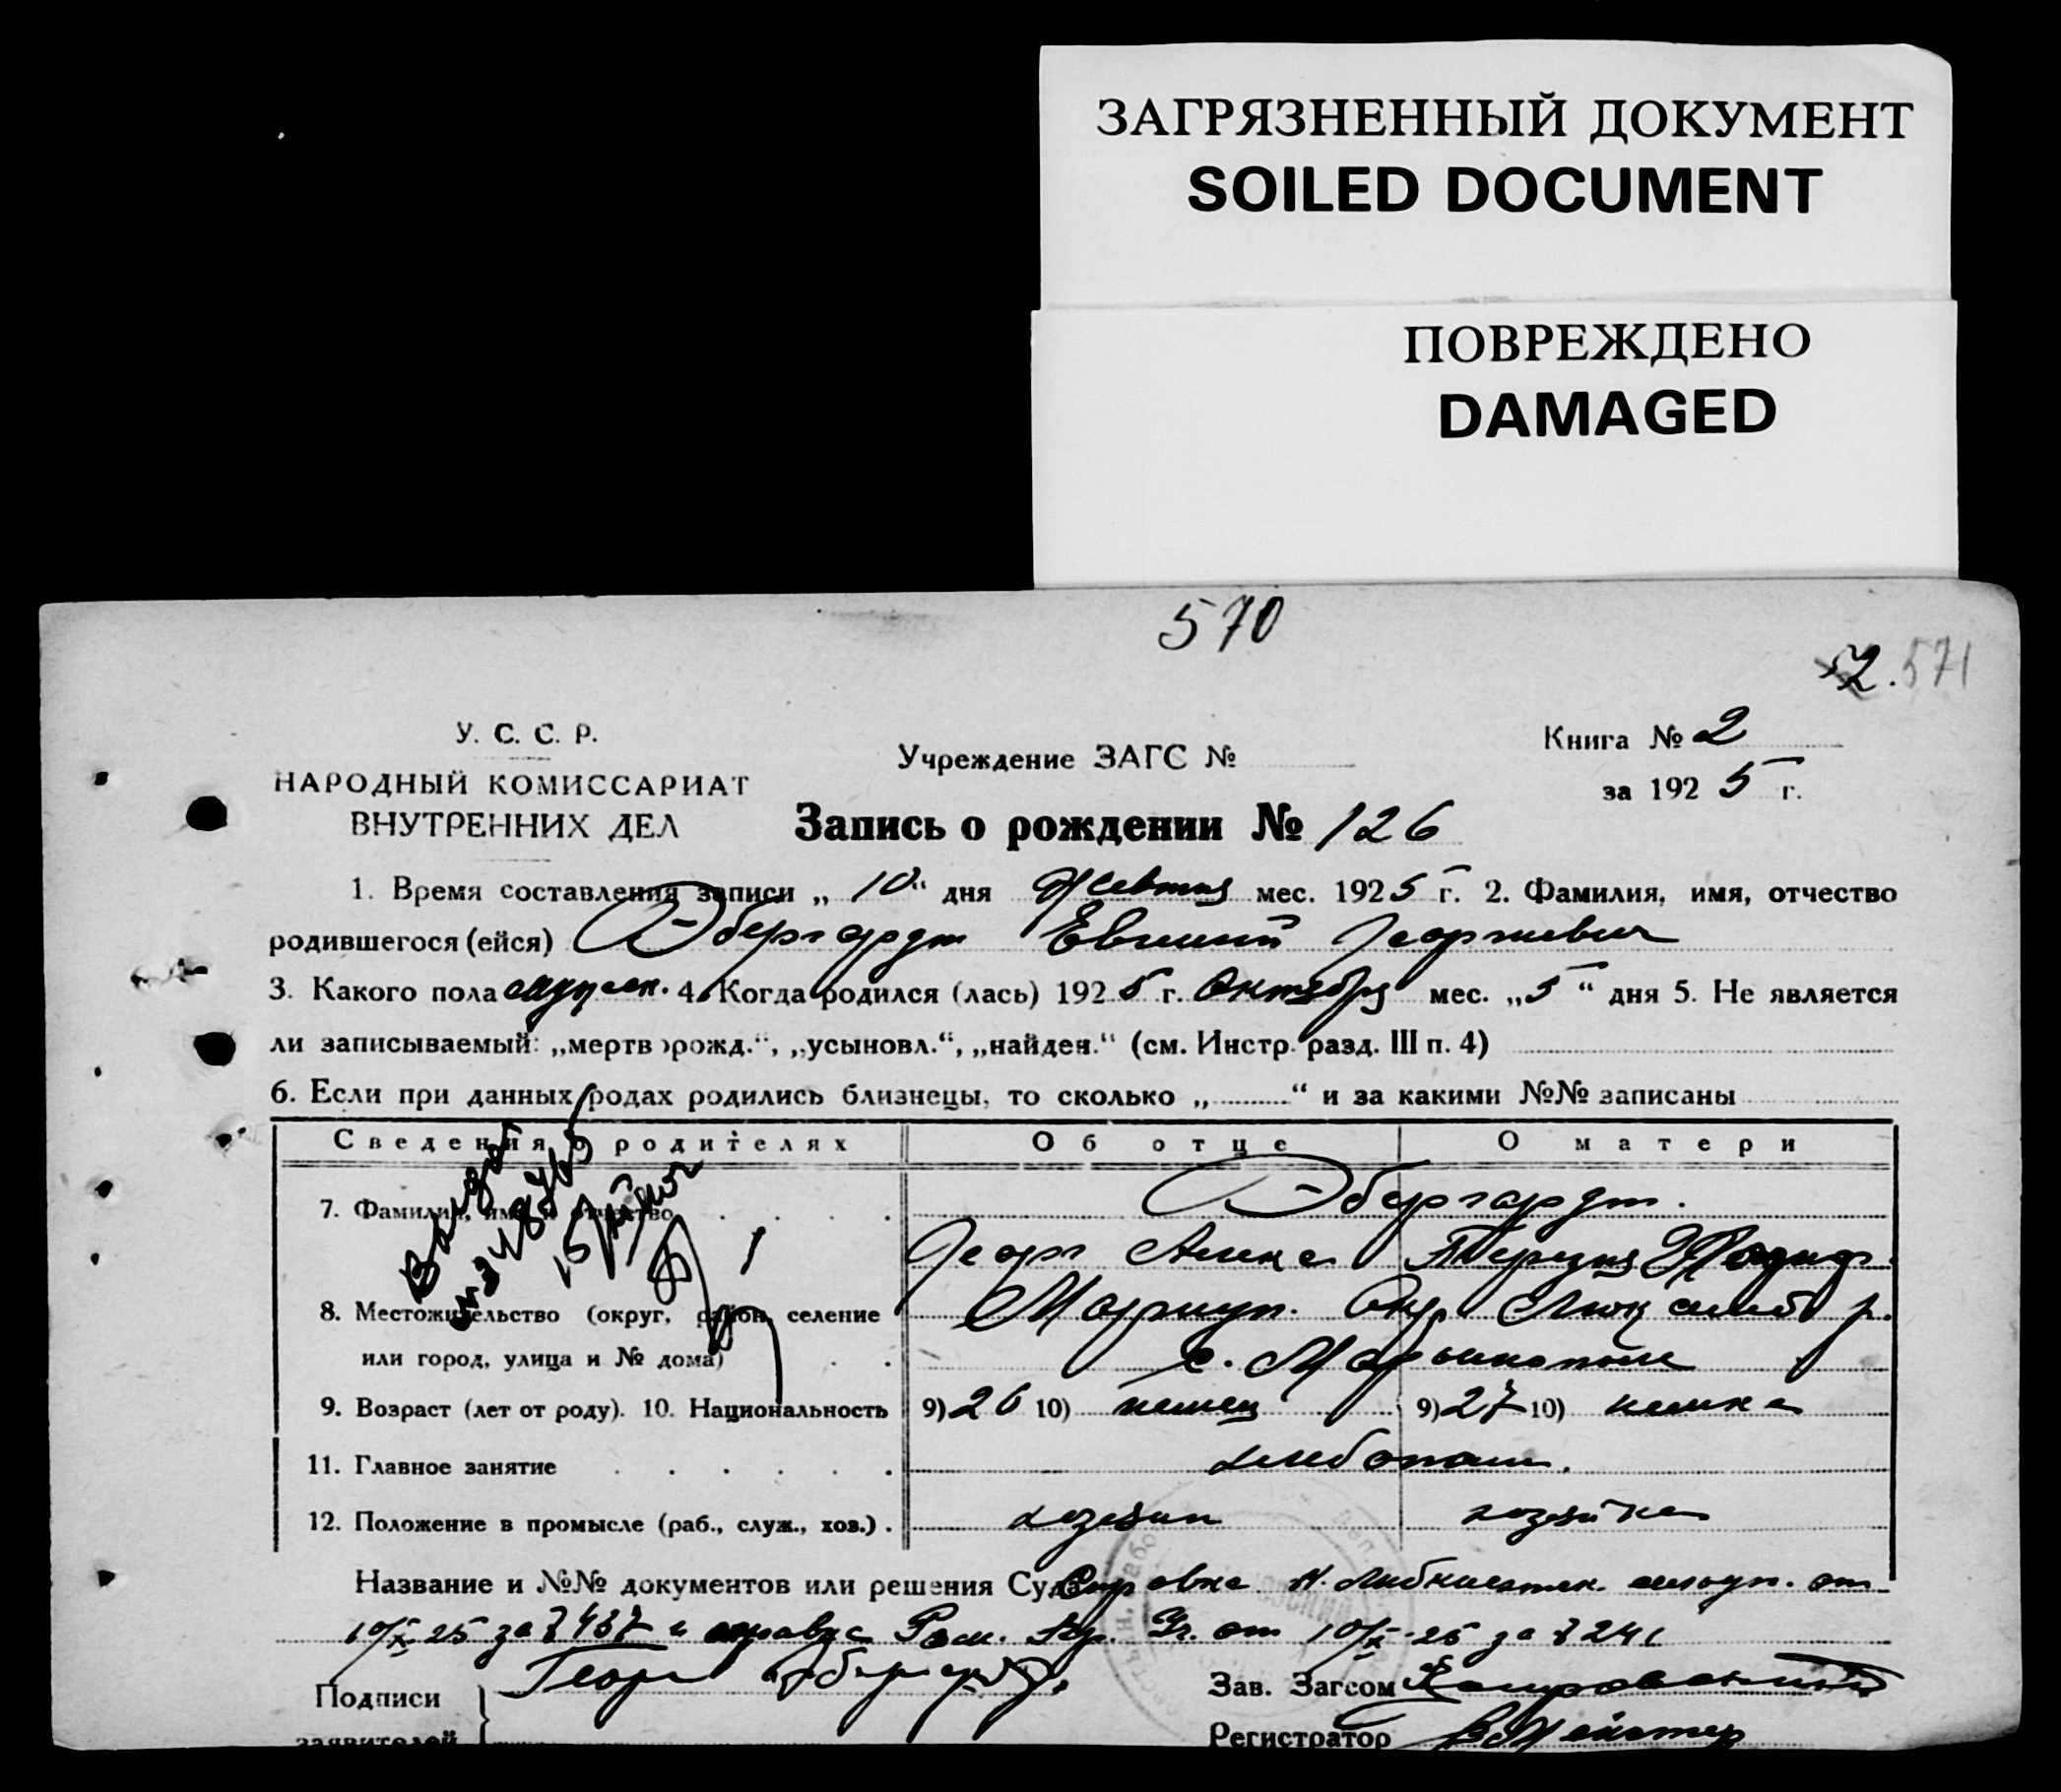 ЗАГРЯЗНЕННЫЙ ДОКУМЕНТ
SOILED DOCUMENT
ПОВРЕЖДЕНО
DAMAGED
570
52. 571
У. С. С. Р.
НАРОДНЫЙ КОМИССАРИАТ
ВНУТРЕННИХ ДЕЛ
Учреждение ЗАГС №
Книга № 2
за 1925 г.
Запись о рождении № 126
1. Время составления записи „ 10 “ дня мес. 1925 г. 2. Фамилия, имя, отчество
родившегося (ейся) Эбергардт Евгений Георгиевич
3. Какого пола мужск. 4. Когда родился (лась) 1925 г. Октября мес. „5“ дня 5. Не является
ли записываемый: „мертворожд.“, „усыновл.“, „найден.“ (см. Инстр. разд. III п. 4)
6. Если при данных родах родились близнецы, то сколько „..........“ и за какими №№ записаны
Сведения о родителях Об отце О матери
7. Фамилия, имя и отчество Эбергардт.
Георг Алекс
8. Местожительство (округ, район, селение Мариуп. Окр. р.
или город, улица и № дома) с.
9. Возраст (лет от роду). 10. Национальность 9) 26 10) немец 9) 27 10) немка
11. Главное занятие хлебопаш.
12. Положение в промысле (раб., служ., хоз.) . хозяин хозяйка
Название и №№ документов или решения Суда Справка от
10/X 25 за № 437 и справка от 10/X-25 за № 241
Подписи
заявителей
Георг Эбергардт.
Зав. Загсом
Регистратор